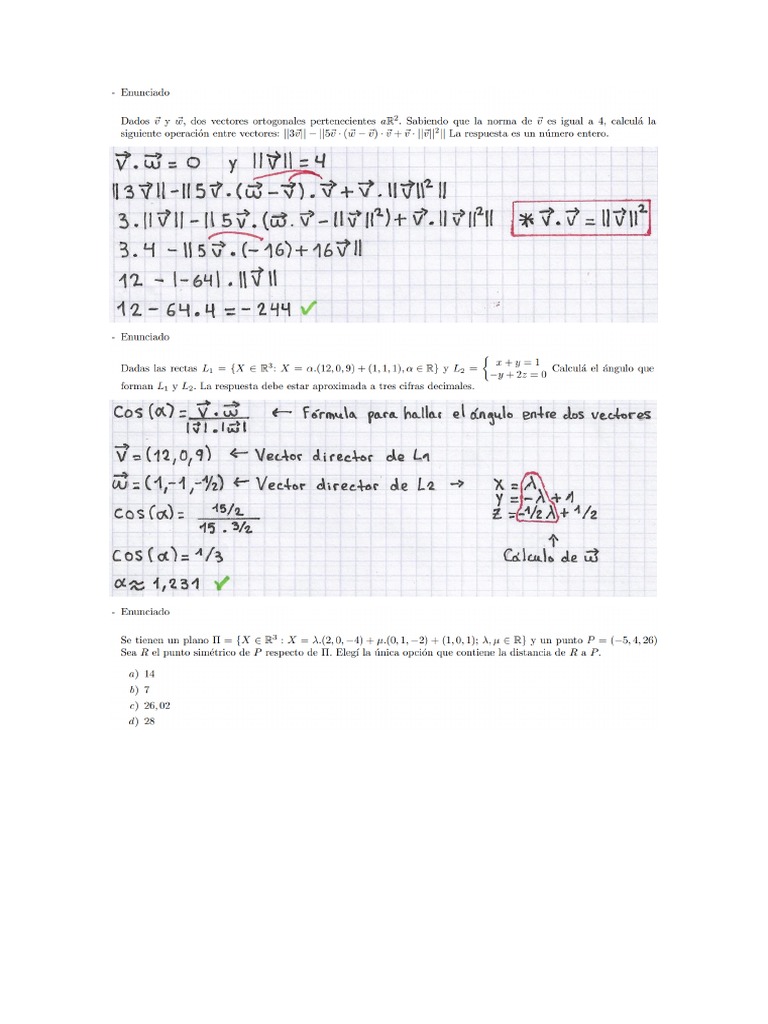 - Enunciado
Dados v⃗ y w⃗, dos vectores ortogonales pertenecientes aℝ². Sabiendo que la norma de v⃗ es igual a 4, calculá la
siguiente operación entre vectores: ||3v⃗|| − ||5v⃗ · (w⃗ − v⃗) · v⃗ + v⃗ · ||v⃗||²|| La respuesta es un número entero.
v⃗.w⃗ = 0 y ||v⃗|| = 4
||3v⃗|| - ||5v⃗.(w⃗-v⃗).v⃗ + v⃗.||v⃗||²||
3.||v⃗|| - ||5v⃗.(w⃗.v⃗ - ||v⃗||²) + v⃗.||v⃗||²|| * v⃗.v⃗ = ||v⃗||²
3.4 - ||5v⃗.(-16) + 16v⃗||
12 - |-64|.||v⃗||
12 - 64.4 = -244 ✓
- Enunciado
Dadas las rectas L₁ = {X ∈ ℝ³: X = α.(12, 0, 9) + (1, 1, 1), α ∈ ℝ} y L₂ = { x + y = 1
−y + 2z = 0 Calculá el ángulo que
forman L₁ y L₂. La respuesta debe estar aproximada a tres cifras decimales.
Cos(α) = v⃗.w⃗ / |v⃗|.|w⃗| ← Fórmula para hallar el ángulo entre dos vectores
v⃗ = (12,0,9) ← Vector director de L1
w⃗ = (1,-1,-1/2) ← Vector director de L2 → X = λ
Y = -λ + 1
Z = -1/2 λ + 1/2
Cos(α) = 15/2 / 15 . 3/2
↑
Cos(α) = 1/3 Cálculo de w⃗
α ≈ 1,231 ✓
- Enunciado
Se tienen un plano Π = {X ∈ ℝ³ : X = λ.(2, 0, −4) + μ.(0, 1, −2) + (1, 0, 1); λ, μ ∈ ℝ} y un punto P = (−5, 4, 26)
Sea R el punto simétrico de P respecto de Π. Elegí la única opción que contiene la distancia de R a P.
a) 14
b) 7
c) 26, 02
d) 28